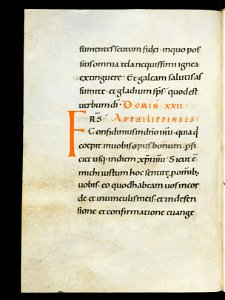 sumentes scutum fidei. in quo pos
sitis omnia tela nequissimi ignea
extinguere. Et galeam salutis as
sumite. et gladium sp̄s quod est
uerbum dī. DOMIN XXII
FRS̄. AD PHILIPPENSIS
Confidimus in dn̄o ih̄u. quia q̄
coepit in uobis opus bonum. p̄fi
ciet usq; in diem xp̄i ih̄u. Sicut ē
mihi iustum hoc sentire p̄ omnib;
uobis. eo quod habeam uos in cor
de et in uinculis meis. et in defen
sione et confirmatione euange